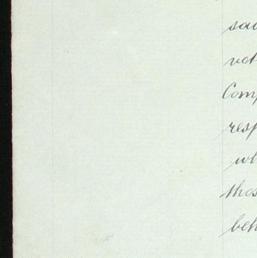 sa
vot
Comp
resp
wh
thos
beh